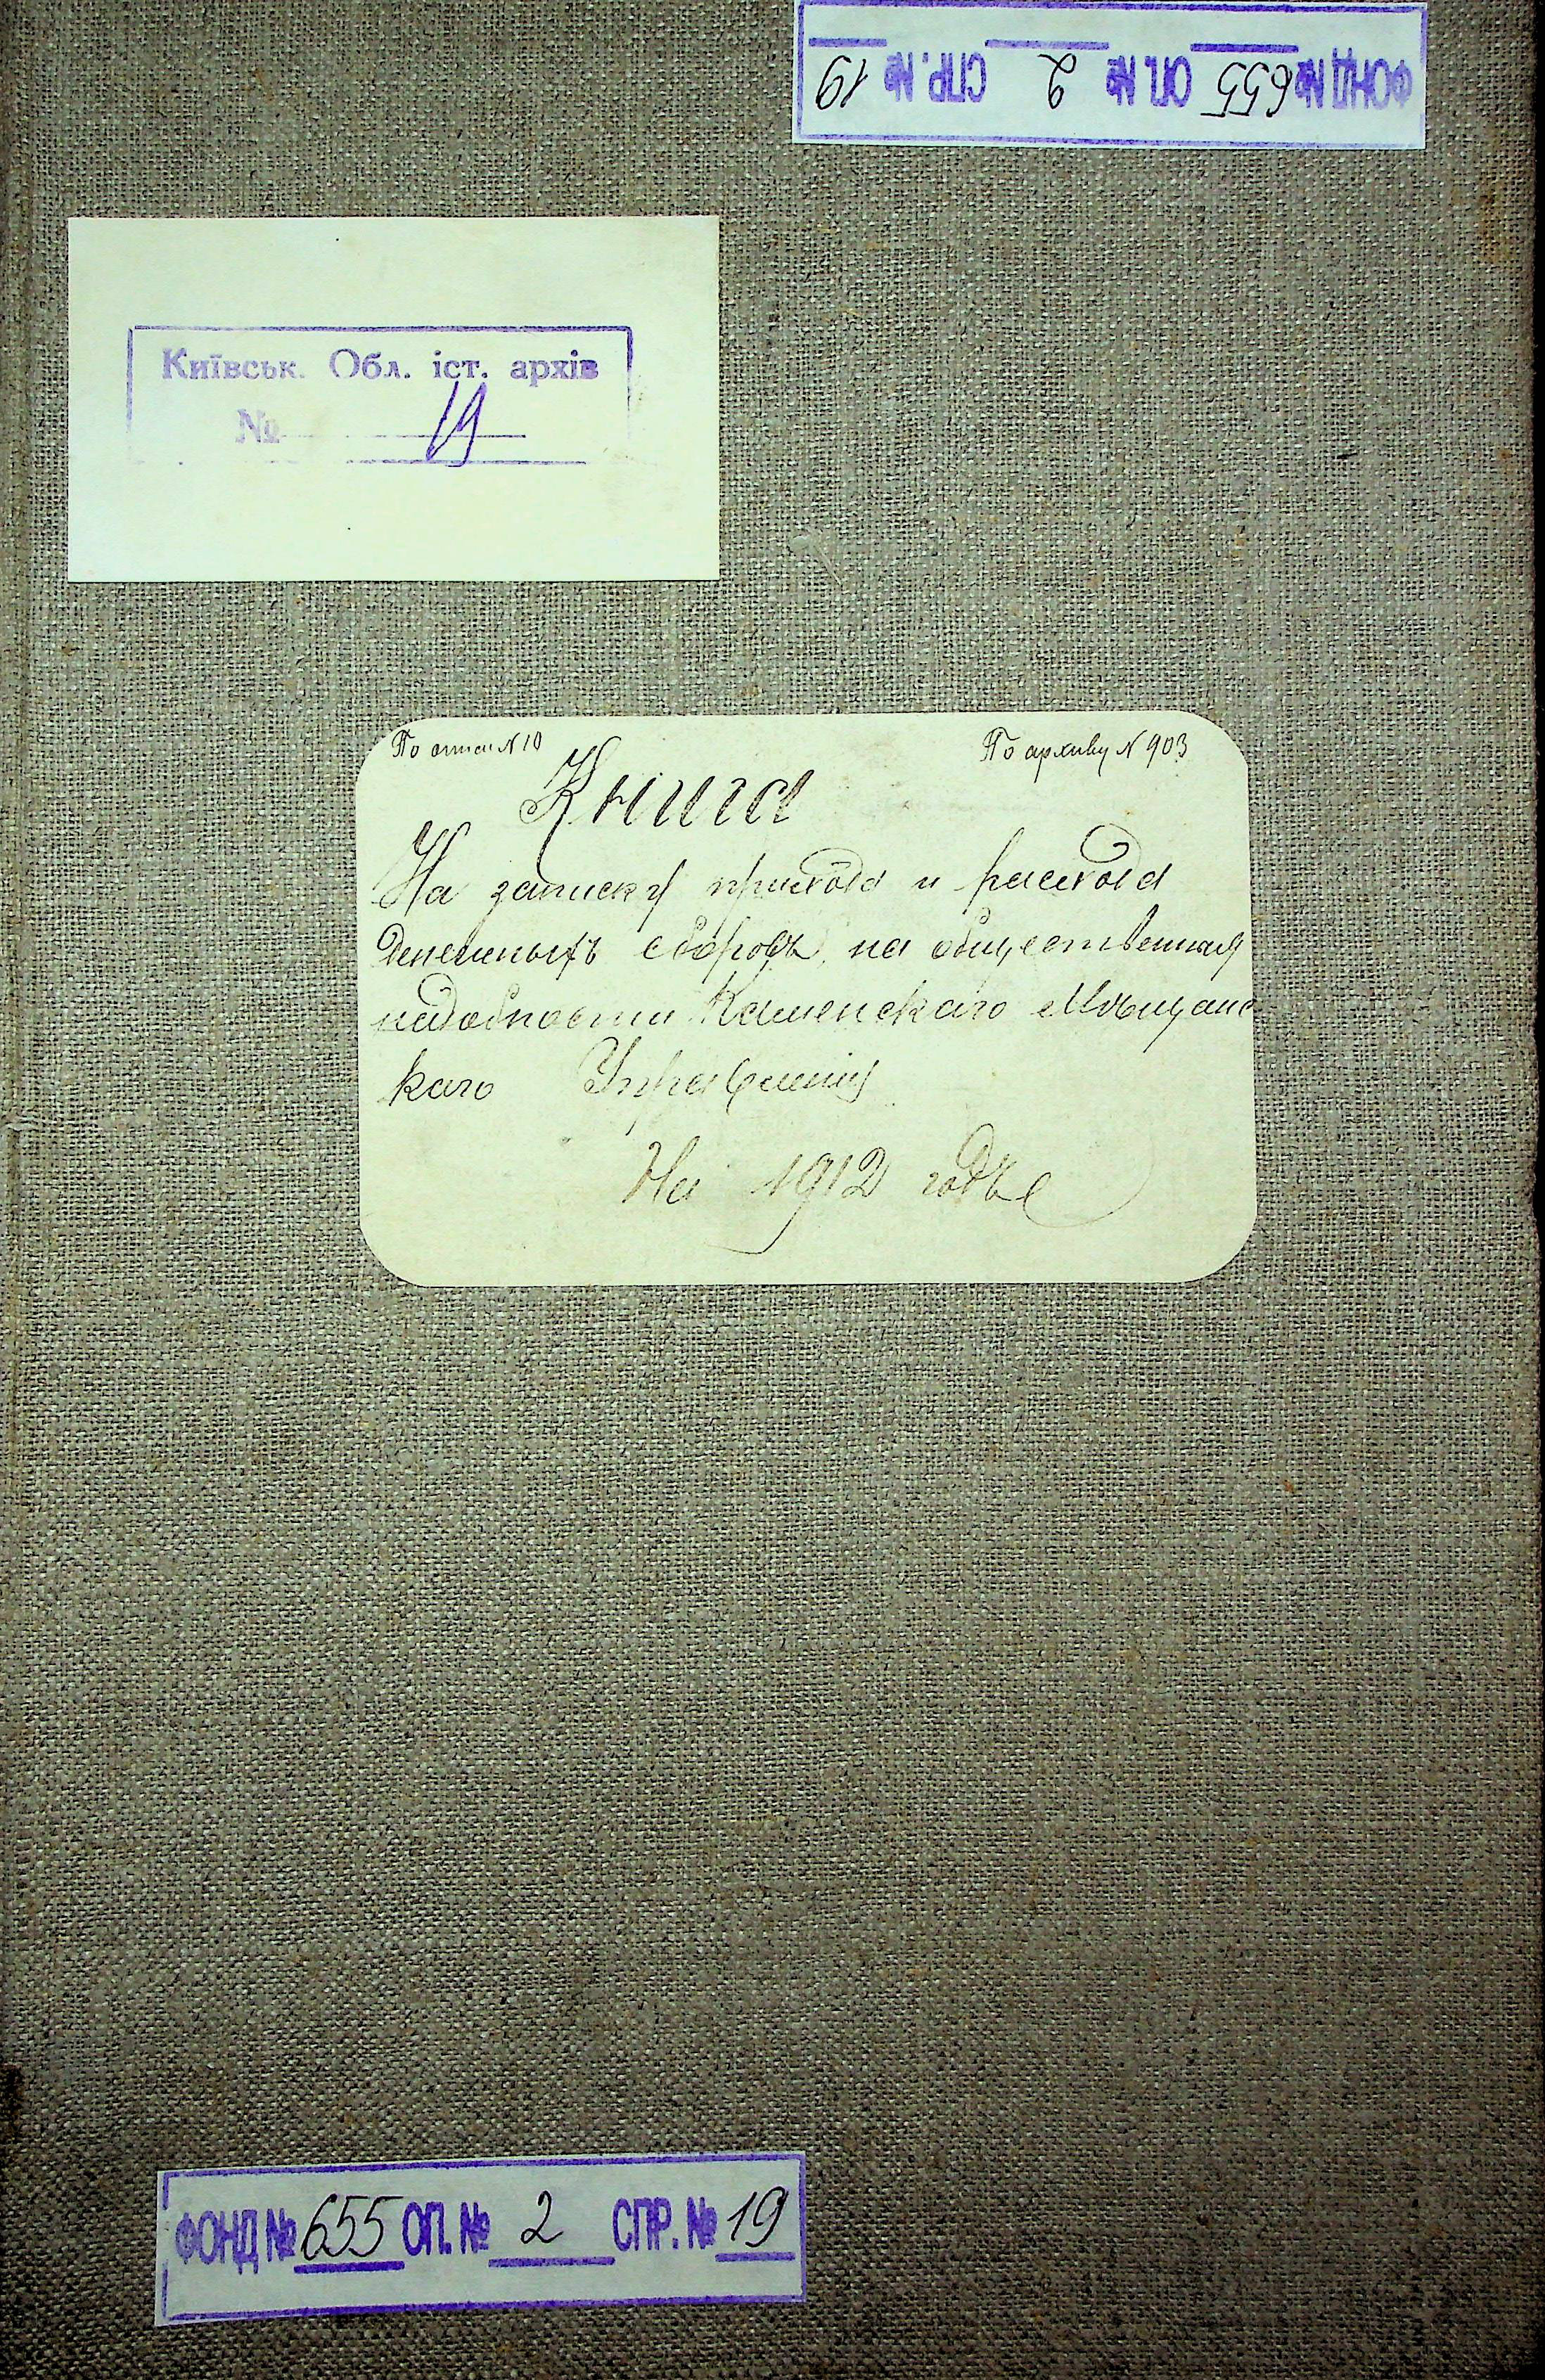 ФОНД № 655 ОП. № 2 СПР. № 19
Київськ. Обл. іст. архів
№ 19
По описи № 10
По архиву № 903
Книга
На записку прихода и расхода
денежныхъ сборовъ на общественныя
надобности Каменскаго Мѣщанс
каго Управленія
На 1912 годъ
ФОНД № 655 ОП. № 2 СПР. № 19